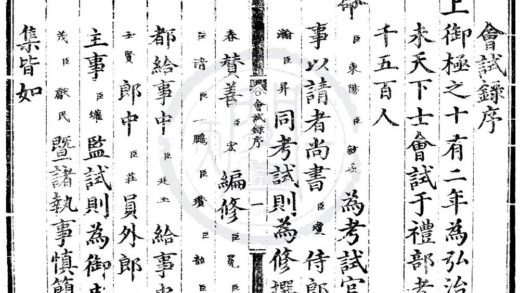 會試錄序
上御極之十有二年為弘治
来天下士會試于禮部者
千五百人
命臣東陽臣敏政為考試官
事以請者尚書臣瓊侍郎
瀚臣昇同考試則為修撰
會試錄序
一
春贊善臣宏編修臣冕臣
臣清臣一鵬臣瓚臣韶
都給事中臣廷玉給事中
士賢郎中臣莊員外郎
主事臣燿監試則為御史
茂臣獻民暨諸執事慎簡
集皆如